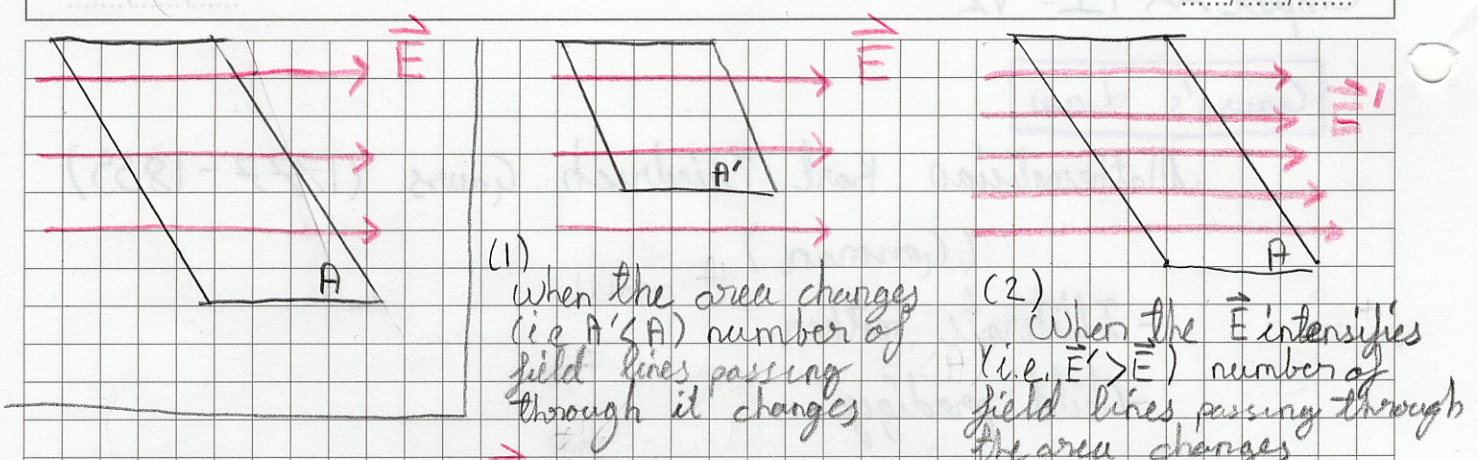 E
A
E
A'
(1)
When the area changes
(i.e A'<A) number of
field lines passing
through it changes
E'
A
(2)
When the E intensifies
(i.e. E'>E) number of
field lines passing through
the area changes